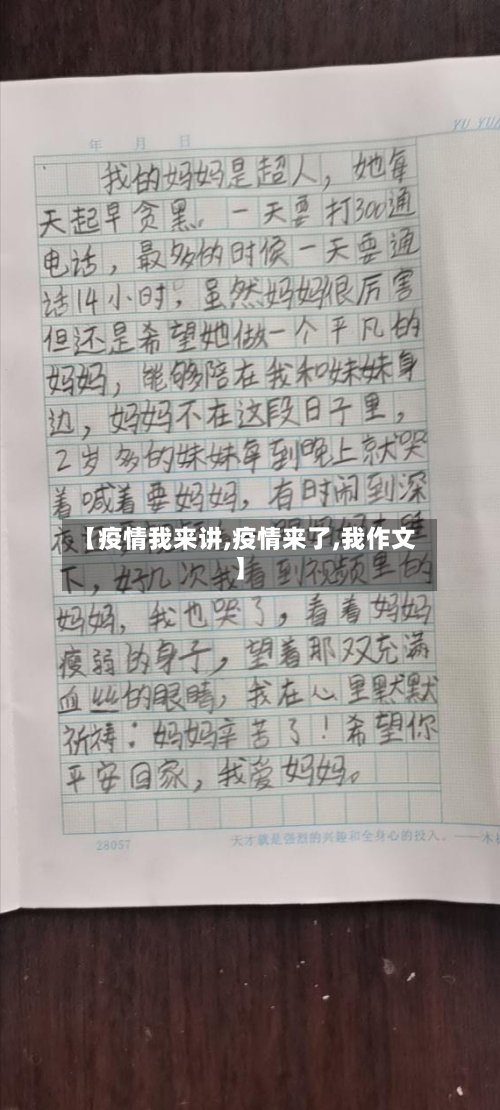 YU YU
年 月 日
我的妈妈是超人，她每
天起早贪黑。一天要打300通
电话，最多的时候一天要通
话14小时，虽然妈妈很厉害
但还是希望她做一个平凡的
妈妈，能够陪在我和妹妹身
边，妈妈不在这段日子里，
2岁多的妹妹每到晚上就哭
着喊着要妈妈，有时闹到深
夜
【疫情我来讲,疫情来了,我作文
】
下，好几次我看到视频里的
妈妈，我也哭了，看着妈妈
瘦弱的身子，望着那双充满
血丝的眼睛，我在心里默默
祈祷：妈妈辛苦了！希望你
平安回家，我爱妈妈。
28057
天才就是强烈的兴趣和全身心的投入。——木村